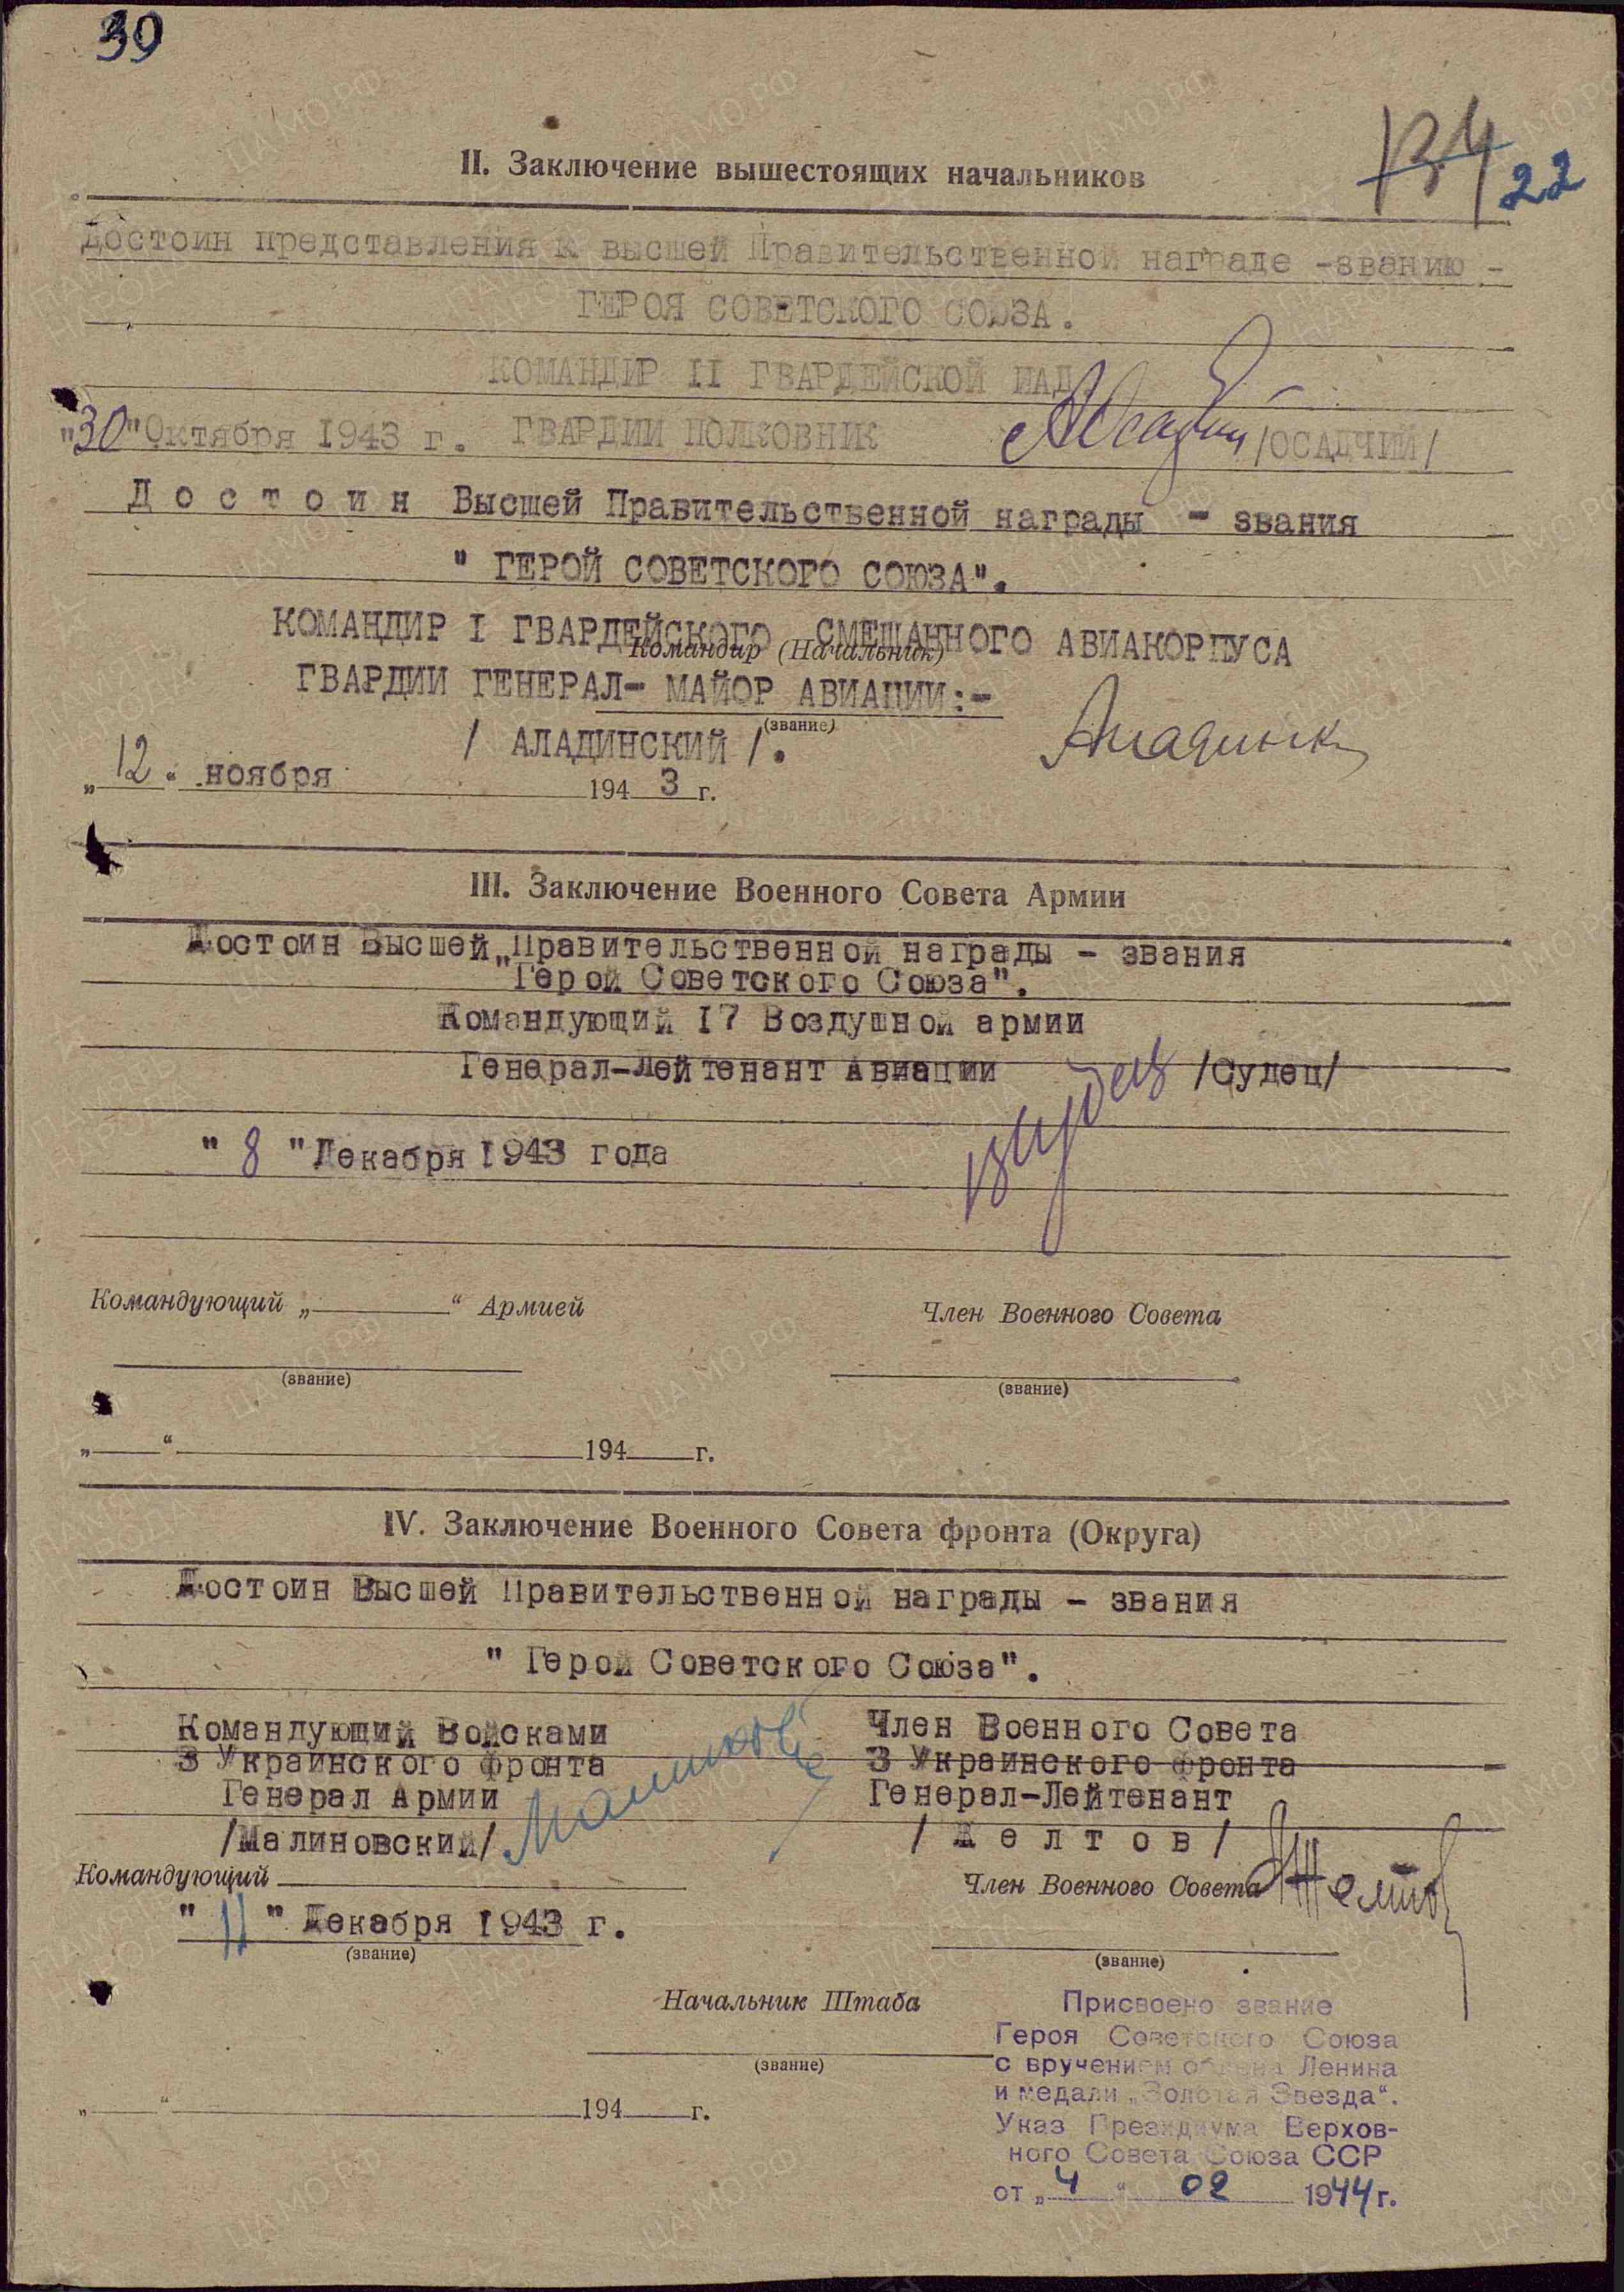 39
134 22
II. Заключение вышестоящих начальников
достоин представления к высшей Правительственной награде -званию -
ГЕРОЯ СОВЕТСКОГО СОЮЗА.
КОМАНДИР II ГВАРДЕЙСКОЙ ИАД
"30"Октября 1943 г. ГВАРДИИ ПОЛКОВНИК /ОСАДЧИЙ/
Д о с т о и н Высшей Правительственной награды - звания
" ГЕРОЙ СОВЕТСКОГО СОЮЗА".
КОМАНДИР I ГВАРДЕЙСКОГО СМЕШАННОГО АВИАКОРПУСА
Командир (Начальник)
ГВАРДИИ ГЕНЕРАЛ- МАЙОР АВИАЦИИ:-
(звание)
/ АЛАДИНСКИЙ /. Аладинск
„12“ ноября 1943 г.
III. Заключение Военного Совета Армии
Достоин Высшей Правительственной награды - звания
"Герой Советского Союза".
Командующий 17 Воздушной армии
Генерал-Лейтенант Авиации ВСудец /Судец/
" 8 "Декабря 1943 года
Командующий „ “ Армией Член Военного Совета
(звание) (звание)
„ “ 194 г.
IV. Заключение Военного Совета фронта (Округа)
Достоин Высшей Правительственной награды - звания
" Герой Советского Союза".
Командующий Войсками Член Военного Совета
3 Украинского фронта 3 Украинского фронта
Генерал Армии Генерал-Лейтенант
/Малиновский/ / Ж е л т о в /
Командующий Член Военного Совета Желтов
" 11 " Декабря 1943 г.
(звание) (звание)
Начальник Штаба
(звание)
„ “ 194 г.
Присвоено звание
Героя Советского Союза
с вручением ордена Ленина
и медали „Золотая Звезда“.
Указ Президиума Верхов-
ного Совета Союза ССР
от „4“ 02 1944 г.